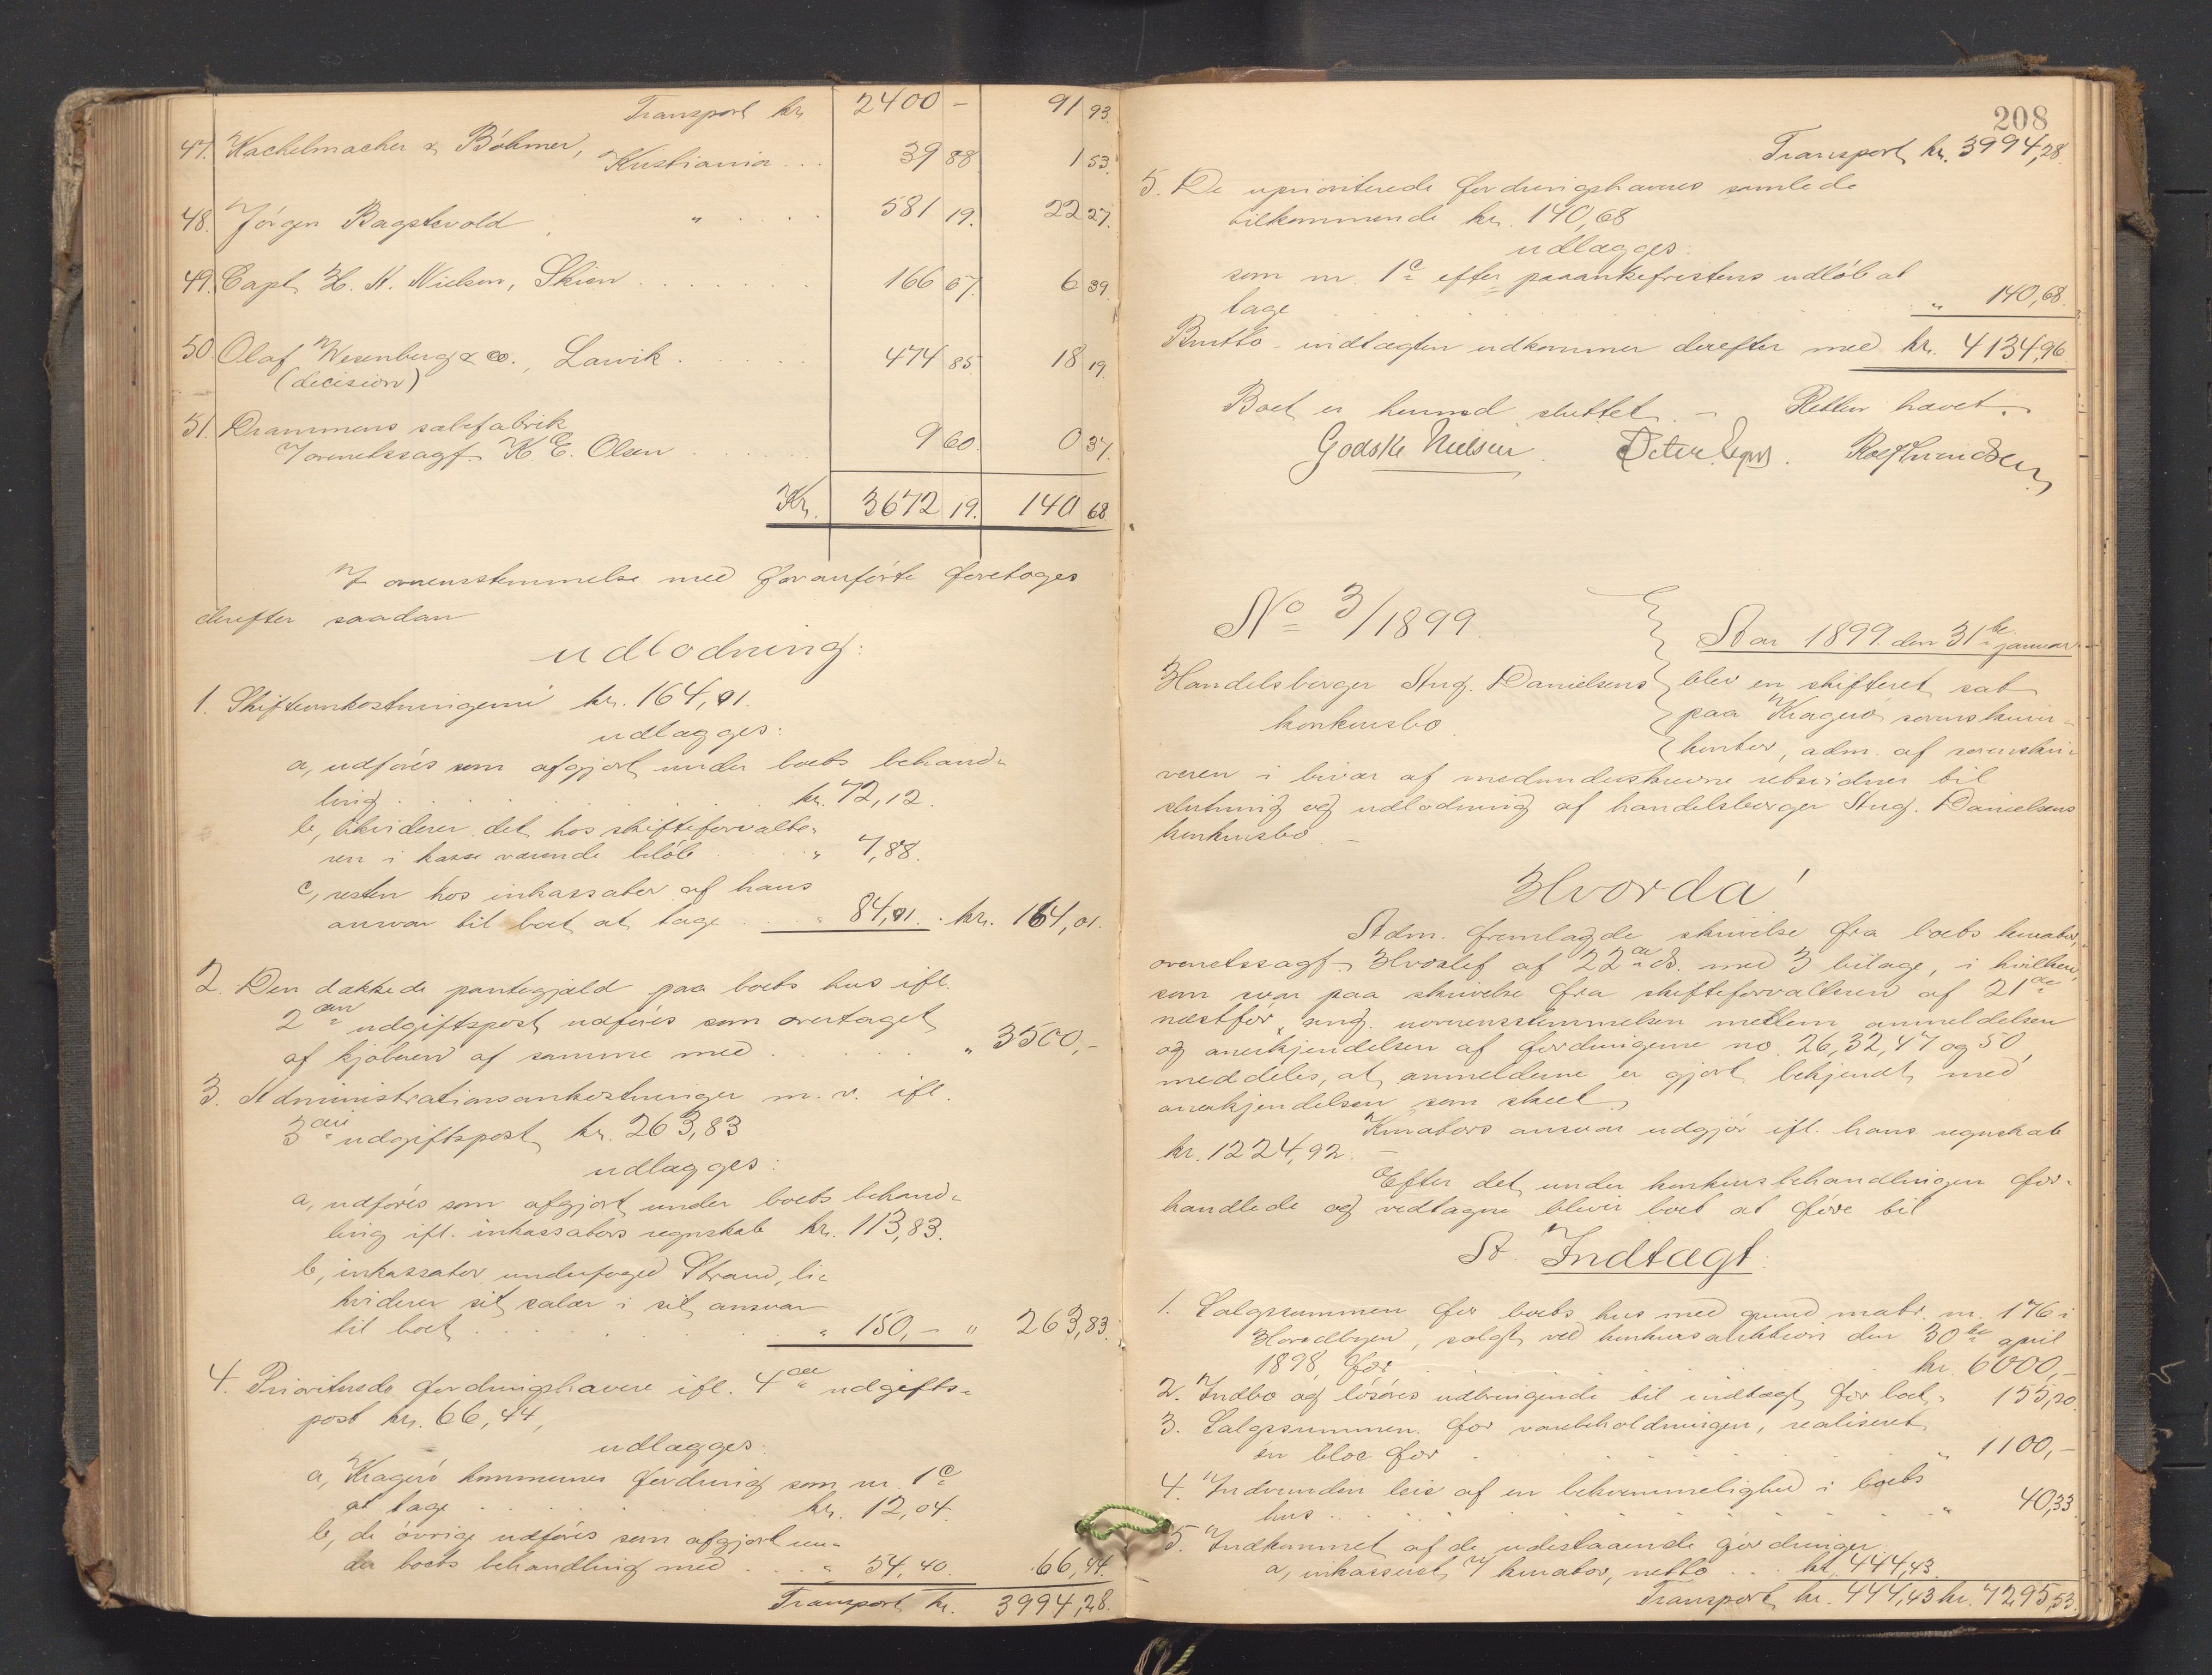 Transport kr. 2400 – 91 93.
47. Kachelmacher & Böhmer,
Kristiania . . 39 88. 1 53.
48. Jörgen Bagstevold, " . . . . 581 19. 22 27.
49. Capt. H. N. Nielsen, Skien . . . . . . . 166 67. 6 39.
50. Olaf Wesenberg & co., Larvik . . . . . 474 85. 18 19.
(decision)
51. Drammens sæbefabrik
v/ overretssagf. K. E. Olsen . . . . . 9 60. 0 37.
Kr. 3672 19. 140 68.
I overensstemmelse med foranførte foretoges
derefter saadan
udlodning:
1. Skifteomkostningerne kr. 164,01.
udlægges:
a, udføres som afgjort under boets behand-
ling . . . . . . . kr. 72,12.
b, likviderer det hos skifteforvalte-
ren i kasse værende beløb . . . " 7,88.
c, resten hos inkassator af hans
ansvar til boet at tage . . . " 84,01. . kr. 164,01.
2. Den dækkede pantegjæld paa boets hus ifl.
2den udgiftspost udføres som overtaget
af kjøberen af samme med . . . . . . " 3500,–
3. Administrationsomkostninger m. v. ifl.
3die udgiftspost kr. 263,83
udlægges:
a, udføres som afgjort under boets behand-
ling ifl. inkassators regnskab kr. 113,83.
b, inkassator, underfoged Strand, li-
kviderer sit salær i sit ansvar
til boet . . . . . . . . . " 150,– " 263,83.
4. Prioriterede fordringshavere ifl. 4de udgifts-
post kr. 66,44,
udlægges:
a, Kragerø kommunes fordring som nr. 1c
at tage . . . . . . . kr. 12,04.
b, de øvrige udføres som afgjort un-
der boets behandling med . . . " 54,40. 66,44.
Transport kr. 3994,28.
208
Transport kr. 3994,28.
5. De uprioriterede fordringshaveres samlede
tilkommende kr. 140,68
udlægges:
som nr. 1c efter paaankefristens udløb at
tage . . . . . . . . . . " 140,68.
Brutto-indtægten udkommer derefter med kr. 4134,96
Boet er hermed sluttet. – Retten hævet.
Godske Nielsen. Peter
No 3/1899.
Aar 1899 den 31te januar
Handelsborger Aug. Danielsens
blev en skifteret sat
konkursbo.
paa Kragerø sorenskriver-
kontor, adm. af sorenskri-
veren i bivær af medunderskrevne retsvidner til
slutning og udlodning af handelsborger Aug. Danielsens
konkursbo. –
Hvorda!
Adm. fremlagde skrivelse fra boets kurator,
overretssagf. Hvoslef af 22de ds. med 3 bilage, i hvilken,
som svar paa skrivelse fra skifteforvalteren af 21de
næstfør, ang. uoverensstemmelsen mellem anmeldelsen
og anerkjendelsen af fordringerne no. 26, 32, 47 og 50,
meddeles, at anmelderne er gjort bekjendt med
anerkjendelsen som skeet.
Kurators ansvar udgjør ifl. hans regnskab
kr. 1224,92. –
Efter det under konkursbehandlingen for-
handlede og vedtagne bliver boet at føre til
A. Indtægt:
1. Salgssummen for boets hus med grund matr. nr. 176 i
Hovedbyen, solgt ved konkursauktion den 30te april
1898, for . . . . . . . . kr. 6000,–
2. Indbo og løsøres udbringende til indtægt for boet, " 155,20.
3. Salgssummen for varebeholdningen, realiseret
en bloc for . . . . . . . . " 1100,–
4. Indvunden leie af en bekvemmelighed i boets
hus . . . . . . . . . . " 40,33.
5. Indkommet af de udestaaende fordringer:
a, inkasseret v/ kurator, netto . . . kr. 444,43.
Transport kr. 444,43 kr. 7295,53.